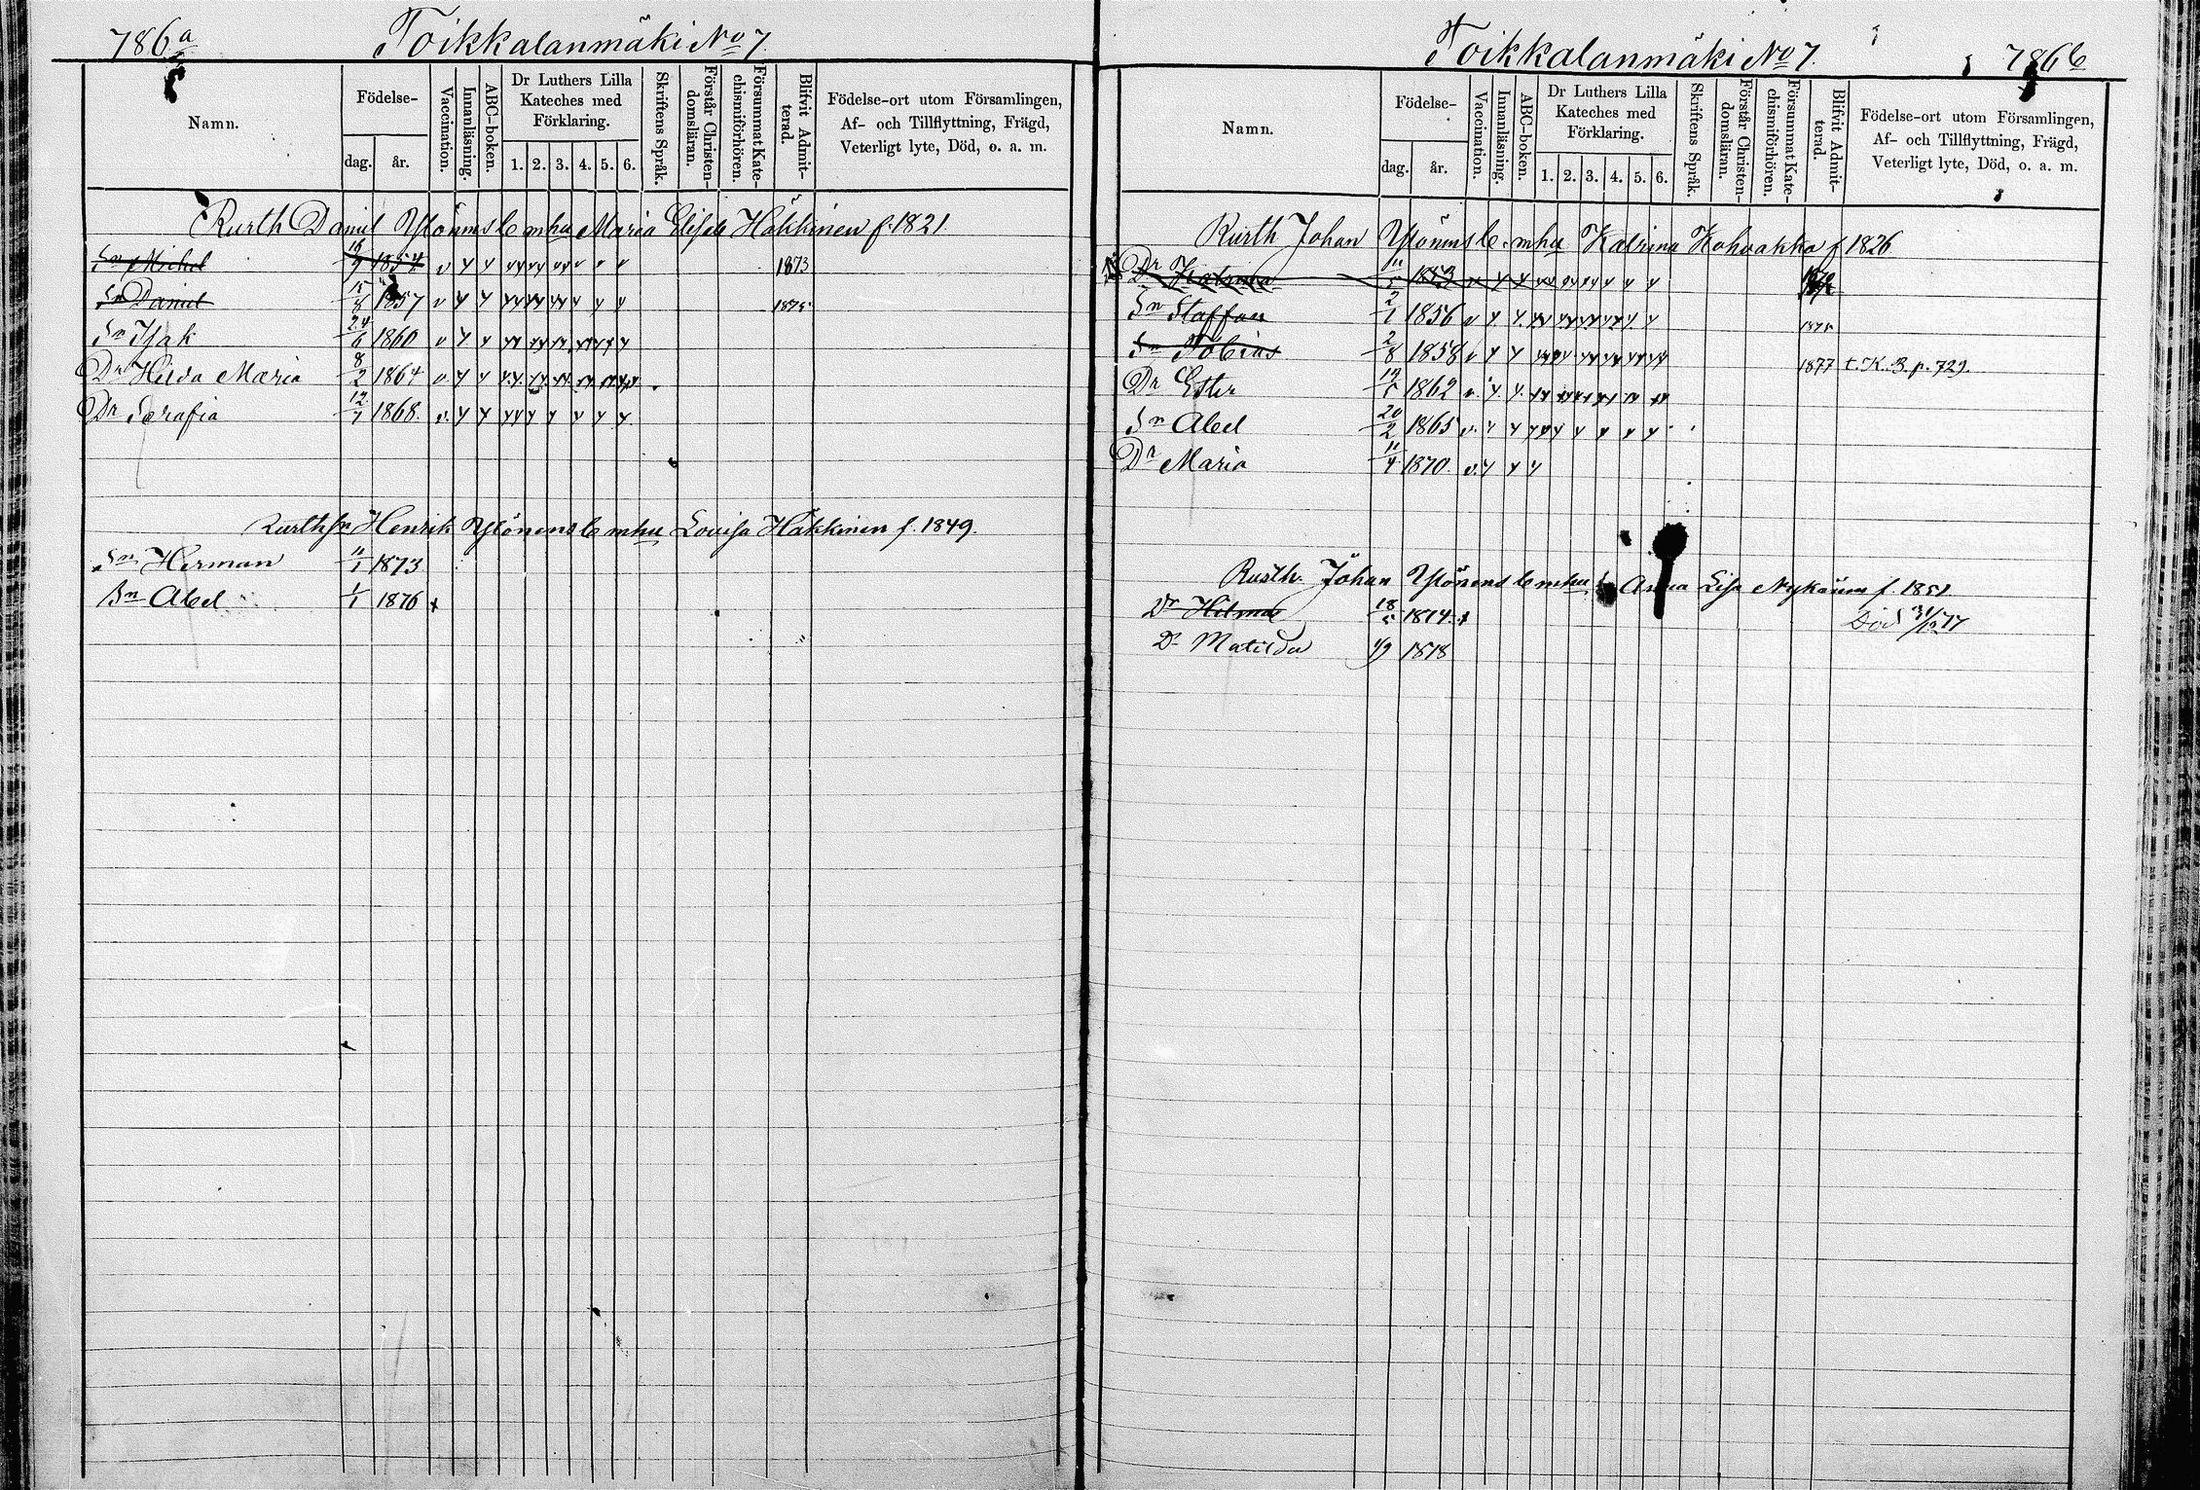 786a Toikkalanmäki No 7.
Namn.
Födelse-
dag. år.
Vaccination.
Innanläsning.
ABC-boken.
Dr Luthers Lilla
Kateches med
Förklaring.
1. 2. 3. 4. 5. 6.
Skriftens Språk.
Förstår Christen-
domsläran.
Försummat Kate-
chismiförhören.
Blifvit Admit-
terad.
Födelse-ort utom Församlingen,
Af- och Tillflyttning, Frägd,
Veterligt lyte, Död, o. a. m.
Rusth Daniel Ylönens b m hu Maria Elisab Häkkinen f. 1821
Sn Michel 16/9 1854 v 1873
Sn Daniel 15/8 1857 v 1875
Sn Isak 24/6 1860 v
Dr Hilda Maria 8/2 1864 v
Dr Serafia 12/7 1868 v
Rusth Sn Henrik Ylönens b m hu Lovisa Häkkinen f. 1849.
Sn Herman 11/1 1873
Sn Abel 1/1 1876
Toikkalanmäki No 7. 786b
Namn.
Födelse-
dag. år.
Vaccination.
Innanläsning.
ABC-boken.
Dr Luthers Lilla
Kateches med
Förklaring.
1. 2. 3. 4. 5. 6.
Skriftens Språk.
Förstår Christen-
domsläran.
Försummat Kate-
chismiförhören.
Blifvit Admit-
terad.
Födelse-ort utom Församlingen,
Af- och Tillflyttning, Frägd,
Veterligt lyte, Död, o. a. m.
Rusth Johan Ylönens b. m hu Katrina Kohvakka f 1826
Dr Katrina 1853
Sn Staffan 2/1 1856 v
Sn Tobias 2/8 1858 v 1877 t. K. B. p. 729.
Dr Ester 1862 v
Sn Abel 20/2 1865 v
Dr Maria 11/4 1870 v
Rusth. Johan Ylönens b m hu Anna Lisa f. 1851
Dr Hilma 18/5 1874 Död 31/12 77
Dr Matilda 1/9 1878